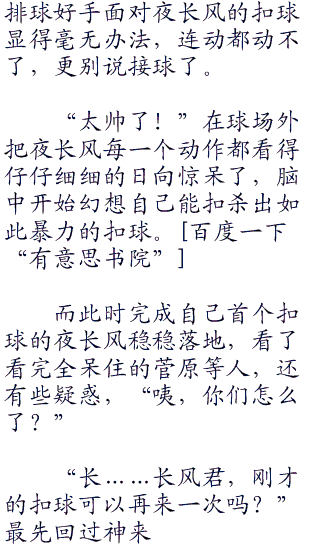 排球好手面对夜长风的扣球
显得毫无办法，连动都动不
了，更别说接球了。
“太帅了！”在球场外
把夜长风每一个动作都看得
仔仔细细的日向惊呆了，脑
中开始幻想自己能扣杀出如
此暴力的扣球。[百度一下
“有意思书院”]
而此时完成自己首个扣
球的夜长风稳稳落地，看了
看完全呆住的菅原等人，还
有些疑惑，“咦，你们怎么
了？”
“长……长风君，刚才
的扣球可以再来一次吗？”
最先回过神来